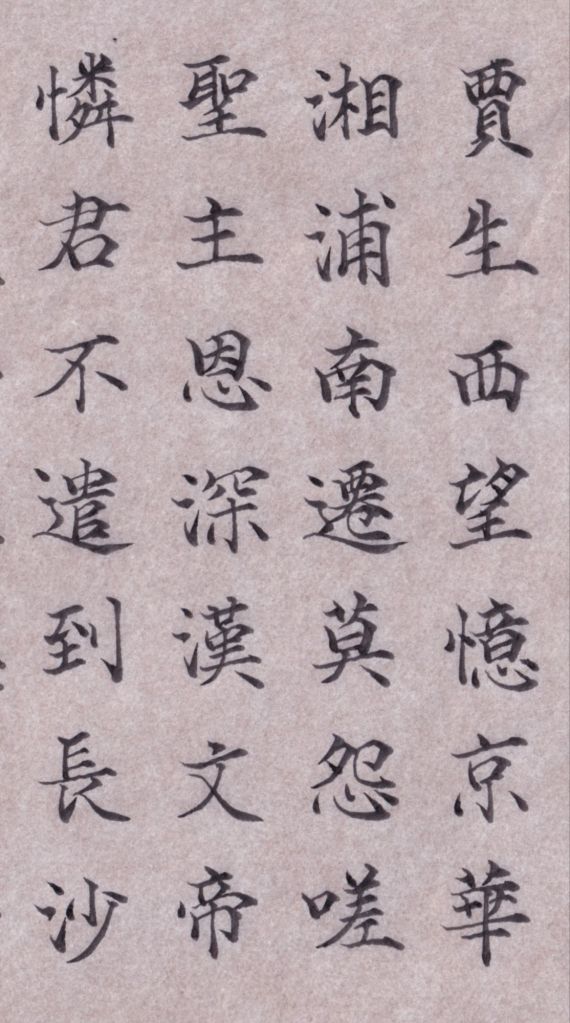 賈生西望憶京華
湘浦南遷莫怨嗟
聖主恩深漢文帝
憐君不遣到長沙